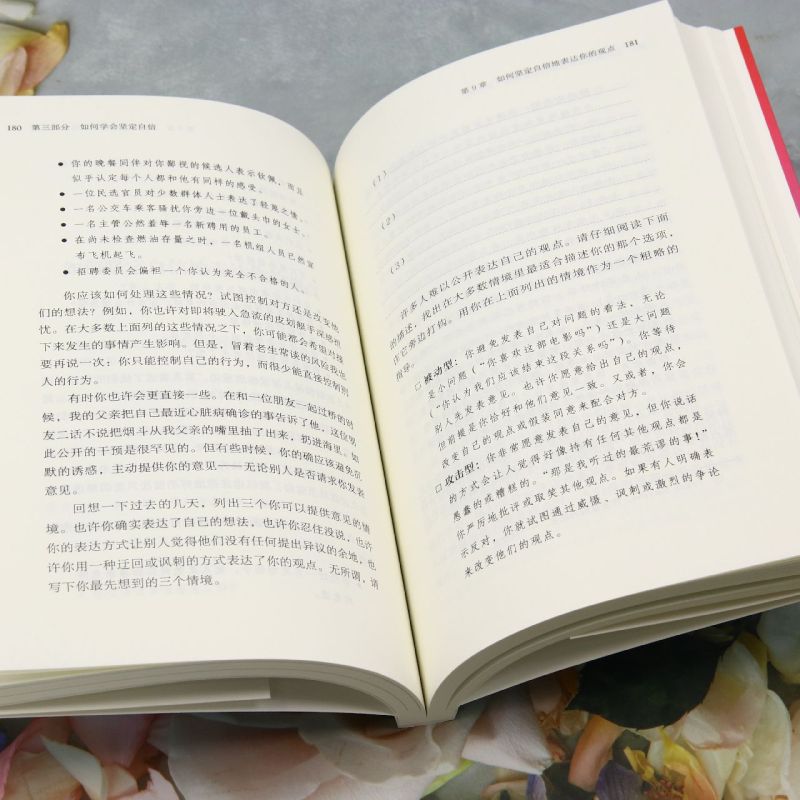 180 第三部分 如何学会坚定自信
● 你的晚餐同伴对你鄙视的候选人表示钦佩，而且
似乎认定每个人都和他有同样的感受。
● 一位民选官员对少数群体人士表达了轻蔑之情。
● 一名公交车乘客骚扰你旁边一位戴头巾的女士。
● 一名主管公然羞辱一名新聘用的员工。
● 在尚未检查燃油存量之时，一名机组人员已然宣
布飞机起飞。
● 招聘委员会偏袒一个你认为完全不合格的人。
你应该如何处理这些情况？试图控制对方还是改变他
们的想法？例如，你也许对即将驶入急流的皮划艇手深感担
忧。在大多数上面列的这些情况之下，你可能都会希望对接
下来发生的事情产生影响。但是，冒着老生常谈的风险我也
要再说一次：你只能控制自己的行为，而很少能直接控制别
人的行为。
有时你也许会更直接一些。在和一位朋友一起过桥的时
候，我的父亲把自己最近心脏病确诊的事告诉了他，这位朋
友二话不说把烟斗从我父亲的嘴里抽了出来，扔进海里。如
此公开的干预是很罕见的。但有些时候，你的确应该避免沉
默的诱惑，主动提供你的意见——无论别人是否请求你发表
意见。
回想一下过去的几天，列出三个你可以提供意见的情
境。也许你确实表达了自己的想法，也许你忍住没说，也许
你的表达方式让别人觉得他们没有任何提出异议的余地，也
许你用一种迂回或讽刺的方式表达了你的观点。无所谓，请
写下你最先想到的三个情境。
第 9 章 如何坚定自信地表达你的观点 181
(1)
(2)
(3)
许多人难以公开表达自己的观点。请仔细阅读下面
的描述，找出在大多数情境里最适合描述你的那个选项，
在它旁边打钩。用你在上面列出的情境作为一个粗略的
指导。
□ 被动型：你避免发表自己对问题的看法，无论
是小问题（“你喜欢这部电影吗”）还是大问题
（“你认为我们应该结束这段关系吗”）。你等待
别人先发表意见。也许你愿意给出自己的观点，
但前提是你恰好和他们意见一致。又或者，你会
改变自己的观点或假装同意来配合对方。
□ 攻击型：你非常愿意发表自己的意见，但你说话
的方式会让人觉得好像持有任何其他观点都是
愚蠢的或糟糕的。“那是我听过的最荒谬的事！”
你严厉地批评或取笑其他观点。如果有人明确表
示反对，你就试图通过威慑、讽刺或激烈的争论
来改变他们的观点。